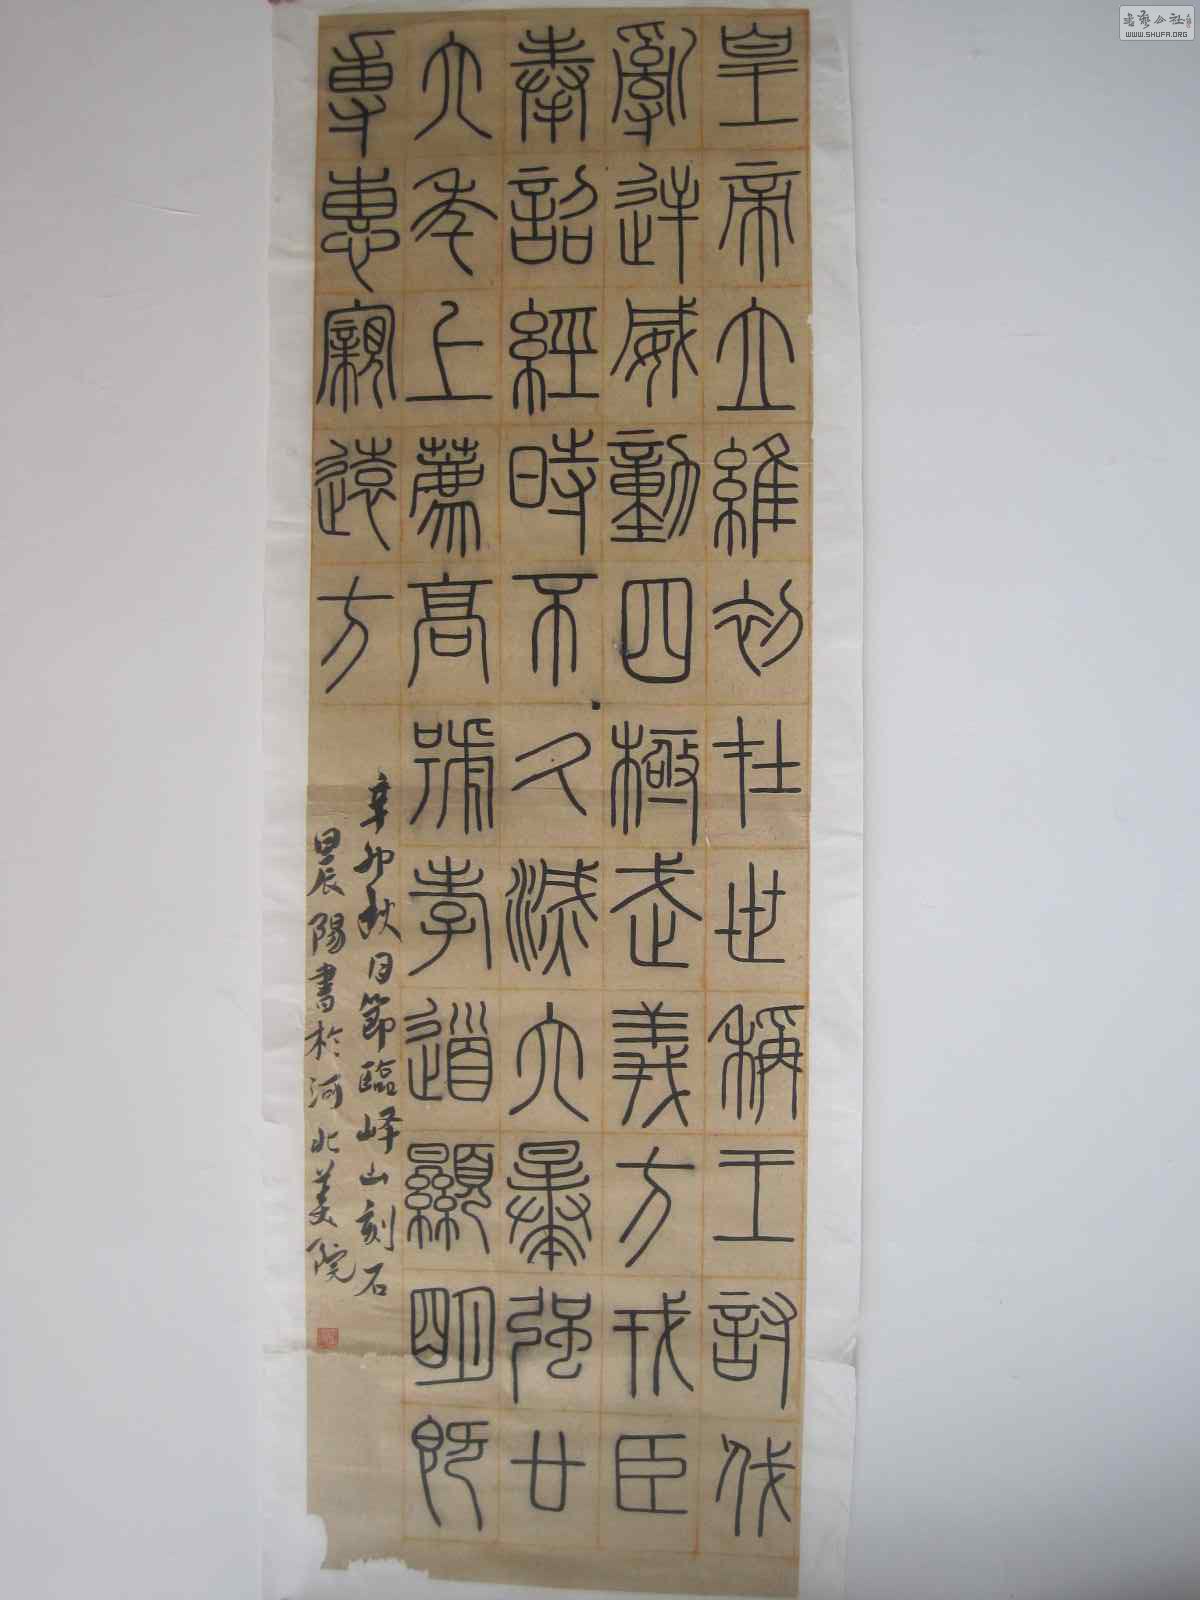 皇帝立維初在世稱王討伐
亂逆威動四極武義方戎臣
奉詔經時不久滅六暴強廿
六年上薦高號孝道顯明既
專惠親遠方
辛卯秋月節臨峄山刻石
晨陽書於河北美院
書藝公社
WWW.SHUFA.ORG